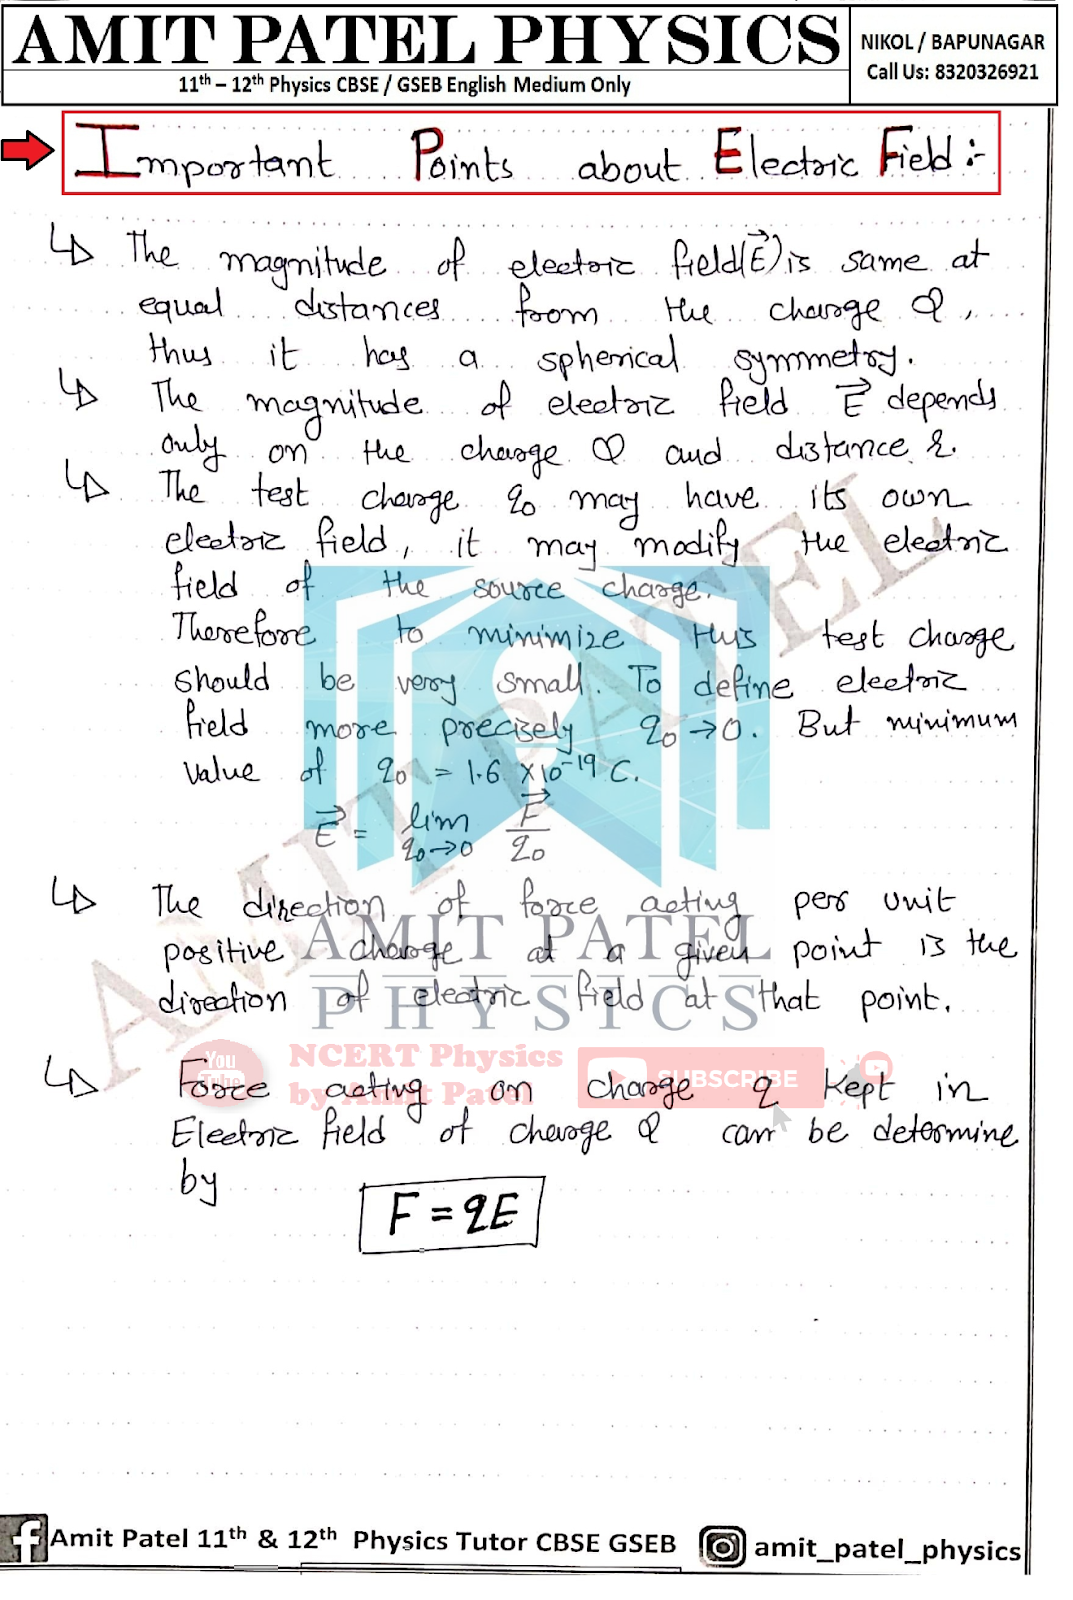 AMIT PATEL PHYSICS
11th – 12th Physics CBSE / GSEB English Medium Only
NIKOL / BAPUNAGAR
Call Us: 8320326921
Important Points about Electric Field :-
The magnitude of electric field(E⃗) is same at
equal distances from the charge Q,
thus it has a spherical symmetry.
The magnitude of electric field E⃗ depends
only on the charge Q and distance r.
The test charge q₀ may have its own
electric field, it may modify the electric
field of the source charge.
Therefore to minimize this test charge
should be very small. To define electric
field more precisely q₀ → 0. But minimum
value of q₀ = 1.6 × 10⁻¹⁹ C.
E⃗ = lim q₀→0 F⃗/q₀
The direction of force acting per unit
positive charge at a given point is the
direction of electric field at that point.
Force acting on charge q kept in
Electric field of charge Q can be determine
by
F = qE
AMIT PATEL
AMIT PATEL
PHYSICS
You Tube
NCERT Physics
by Amit Patel
SUBSCRIBE
Amit Patel 11th & 12th Physics Tutor CBSE GSEB
amit_patel_physics